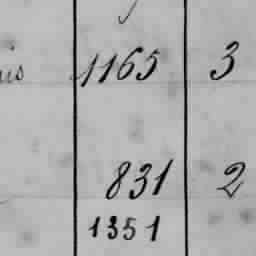 1165 3
831 2
1351